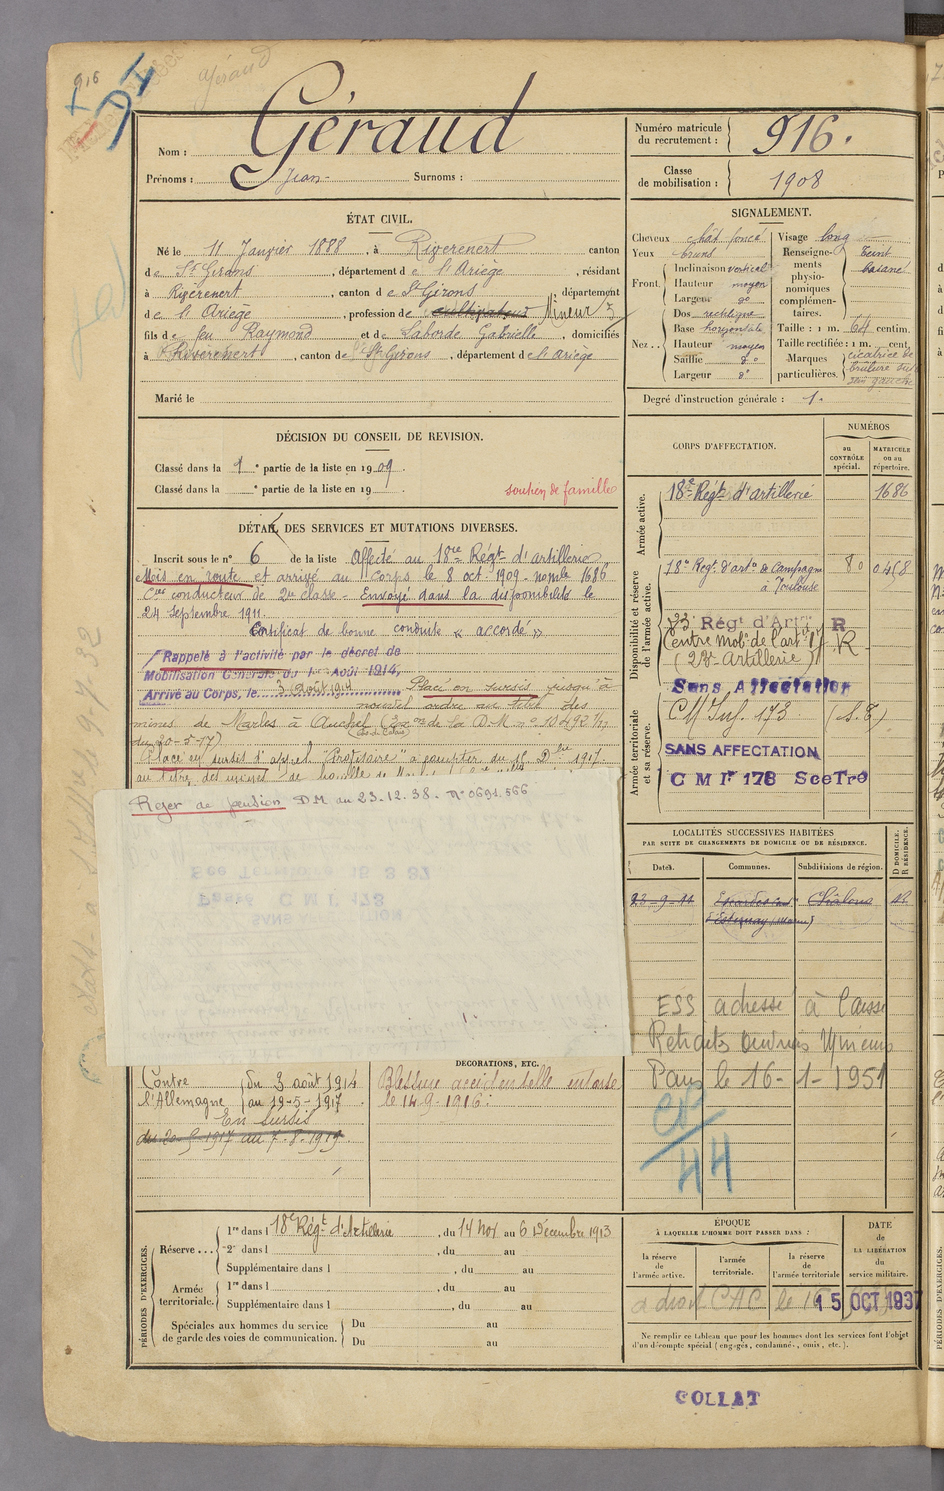 916
Géraud
Nom : Géraud
Prénoms : Jean Surnoms :
Numéro matricule du recrutement : 916.
Classe de mobilisation : 1908
ÉTAT CIVIL.
Né le 11 Janvier 1888, à Riverenert canton
de St Girons, département de l'Ariège, résidant
à Riverenert, canton de St Girons, département
de l'Ariège, profession de cultivateur Mineur
fils de feu Raymond et de Laborde Gabrielle, domiciliés
à Riverenert, canton de St Girons, département de l'Ariège
Marié le
SIGNALEMENT.
Cheveux chât foncé
Yeux bruns
Front. Inclinaison vertical
Hauteur moyen
Largeur do
Nez .. Dos rectiligne
Base horizontale
Hauteur moyen
Saillie do
Largeur do
Visage long
Renseignements physionomiques complémentaires. Teint basané
Taille : 1 m. 64 centim.
Taille rectifiée : 1 m. cent.
Marques particulières. cicatrice de brûlure sur sein gauche
Degré d'instruction générale : 1.
DÉCISION DU CONSEIL DE REVISION.
Classé dans la 1e partie de la liste en 1909.
Classé dans la e partie de la liste en 19
soutien de famille
DÉTAIL DES SERVICES ET MUTATIONS DIVERSES.
Inscrit sous le no 6 de la liste Affecté au 18e Régt d'artillerie
Mis en route et arrivé au Corps le 8 oct. 1909 - no mle 1686
Cer conducteur de 2e classe - Envoyé dans la disponibilité le
24 Septembre 1911.
Certificat de bonne conduite « accordé »
Rappelé à l'activité par le décret de
Mobilisation Générale du 1er Août 1914,
Arrivé au Corps, le 3 août 1914 Placé en sursis jusqu'à
nouvel ordre au titre des
mines de Marles à Auchel
du 20-5-17)
Placé en sursis d'appel à compter du 15 Dbre 1917.
au titre des mines de houille de
Rejet de pension DM du 23.12.38. No 0691.566
CORPS D'AFFECTATION.
NUMÉROS
au CONTRÔLE spécial.
MATRICULE ou au répertoire.
Armée active.
18e Régt d'artillerie 1686
Disponibilité et réserve de l'armée active.
18e Régt d'arte de Campagne à Toulouse
23 Régt d'Art R
Centre Mobon de l'arte 17 R
(23e Artillerie)
Sans Affectation
Armée territoriale et sa réserve.
CM Inf. 173 (S.T)
SANS AFFECTATION
C M Ir 178 Sce Tre
LOCALITÉS SUCCESSIVES HABITÉES
PAR SUITE DE CHANGEMENTS DE DOMICILE OU DE RÉSIDENCE.
Dates. Communes. Subdivisions de région. D DOMICILE. R RÉSIDENCE.
Châlons
(Marne)
ESS adressé à Caisse
Retraite Mineurs
le 16-1-1951
44
DÉCORATIONS, ETC.
Contre l'Allemagne
du 3 août 1914
au 19-5-1917
En Sursis
du 20-5-1917 au 7-8-1919
Blessure accidentelle entorse
le 14-9-1916.
PÉRIODES D'EXERCICES.
Réserve ...
1re dans l 18e Régt d'Artillerie, du 14 Nov au 6 Décembre 1913
2e dans l , du au
Supplémentaire dans l , du au
Armée territoriale.
1re dans l , du au
Supplémentaire dans l , du au
Spéciales aux hommes du service de garde des voies de communication.
Du au
Du au
ÉPOQUE
À LAQUELLE L'HOMME DOIT PASSER DANS :
la réserve de l'armée active.
l'armée territoriale.
la réserve de l'armée territoriale
DATE de LA LIBÉRATION du service militaire.
a droit CAC le
15 OCT 1937
Ne remplir ce tableau que pour les hommes dont les services font l'objet
d'un décompte spécial (engagés, condamnés, omis, etc.).
COLLAT